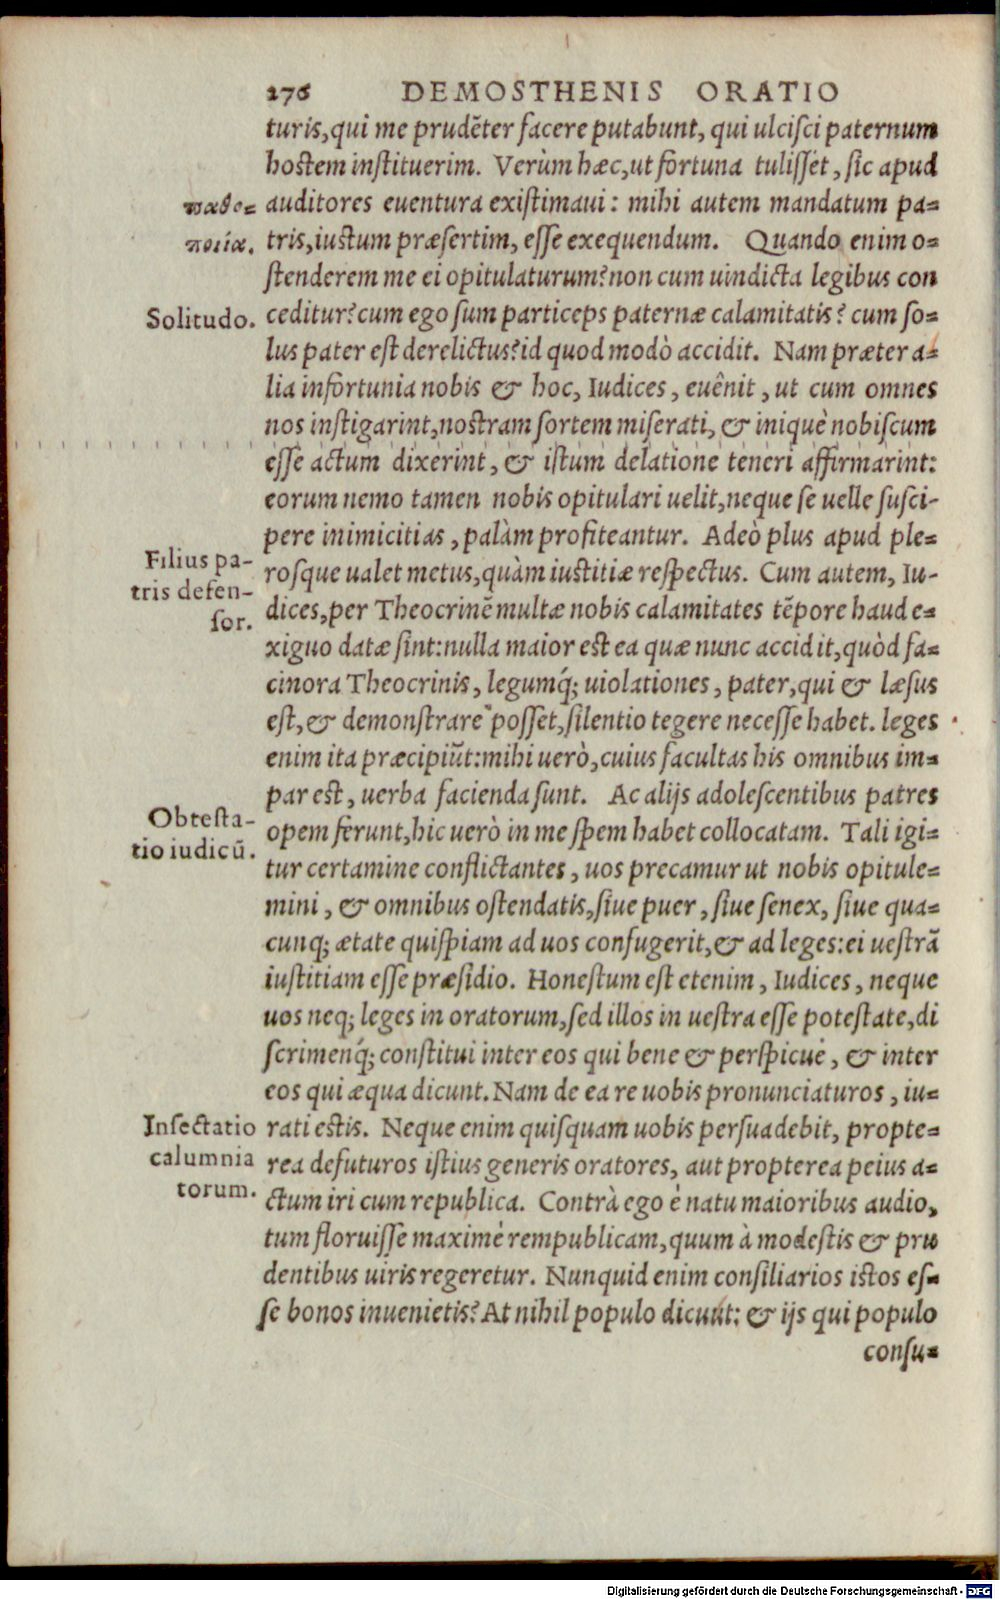 276 DEMOSTHENIS ORATIO
turis,qui me prudẽter facere putabunt, qui ulciſci paternum
hostem inſtituerim. Verùm hæc,ut fortuna tulisſet, ſic apud
παθο= auditores euentura existimaui: mihi autem mandatum pa=
ποιία. tris,iustum præſertim, eſſe exequendum. Quando enim o=
stenderem me ei opitulaturum? non cum uindicta legibus con
Solitudo. ceditur? cum ego ſum particeps paternæ calamitatis? cum ſo=
lus pater est derelictus? id quod modò accidit. Nam præter a=
lia infortunia nobis & hoc, Iudices, euênit, ut cum omnes
nos inſtigarint,nostram ſortem miſerati, & iniquè nobiſcum
eſſe actum dixerint, & iſtum delatione teneri affirmarint:
eorum nemo tamen nobis opitulari uelit,neque ſe uelle ſuſci-
pere inimicitias, palàm profiteantur. Adeò plus apud ple=
Filius pa- roſque ualet metus,quàm iustitiæ reſpectus. Cum autem, Iu-
tris defen-
ſor. dices,per Theocrinẽ multæ nobis calamitates tẽpore haud e=
xiguo datæ ſint: nulla maior est ea quæ nunc accidit,quòd fa=
cinora Theocrinis, legumq́; uiolationes, pater,qui & læſus
est,& demonſtrare posſet,ſilentio tegere neceſſe habet. leges
enim ita præcipiũt: mihi uerò,cuius facultas his omnibus im=
par est, uerba facienda ſunt. Ac alijs adoleſcentibus patres
Obteſta-
tio iudicũ. opem ferunt,hic uerò in me ſpem habet collocatam. Tali igi=
tur certamine conflictantes, uos precamur ut nobis opitule=
mini, & omnibus oſtendatis,ſiue puer, ſiue ſenex, ſiue qua=
cunq; ætate quiſpiam ad uos confugerit,& ad leges: ei uestrã
iustitiam eſſe præſidio. Honeſtum est etenim, Iudices, neque
uos neq; leges in oratorum,ſed illos in uestra eſſe poteſtate,di
ſcrimenq́; conſtitui inter eos qui bene & perſpicuè, & inter
eos qui æqua dicunt. Nam de ea re uobis pronunciaturos, iu=
Inſectatio rati estis. Neque enim quiſquam uobis perſuadebit, propte=
calumnia rea defuturos iſtius generis oratores, aut propterea peius a=
torum. ctum iri cum republica. Contrà ego è natu maioribus audio,
tum floruiſſe maximè rempublicam,quum à modeſtis & pru
dentibus uiris regeretur. Nunquid enim conſiliarios istos eſ=
ſe bonos inuenietis? At nihil populo dicunt: & ijs qui populo
conſu=
Digitalisierung gefördert durch die Deutsche Forschungsgemeinschaft - DFG